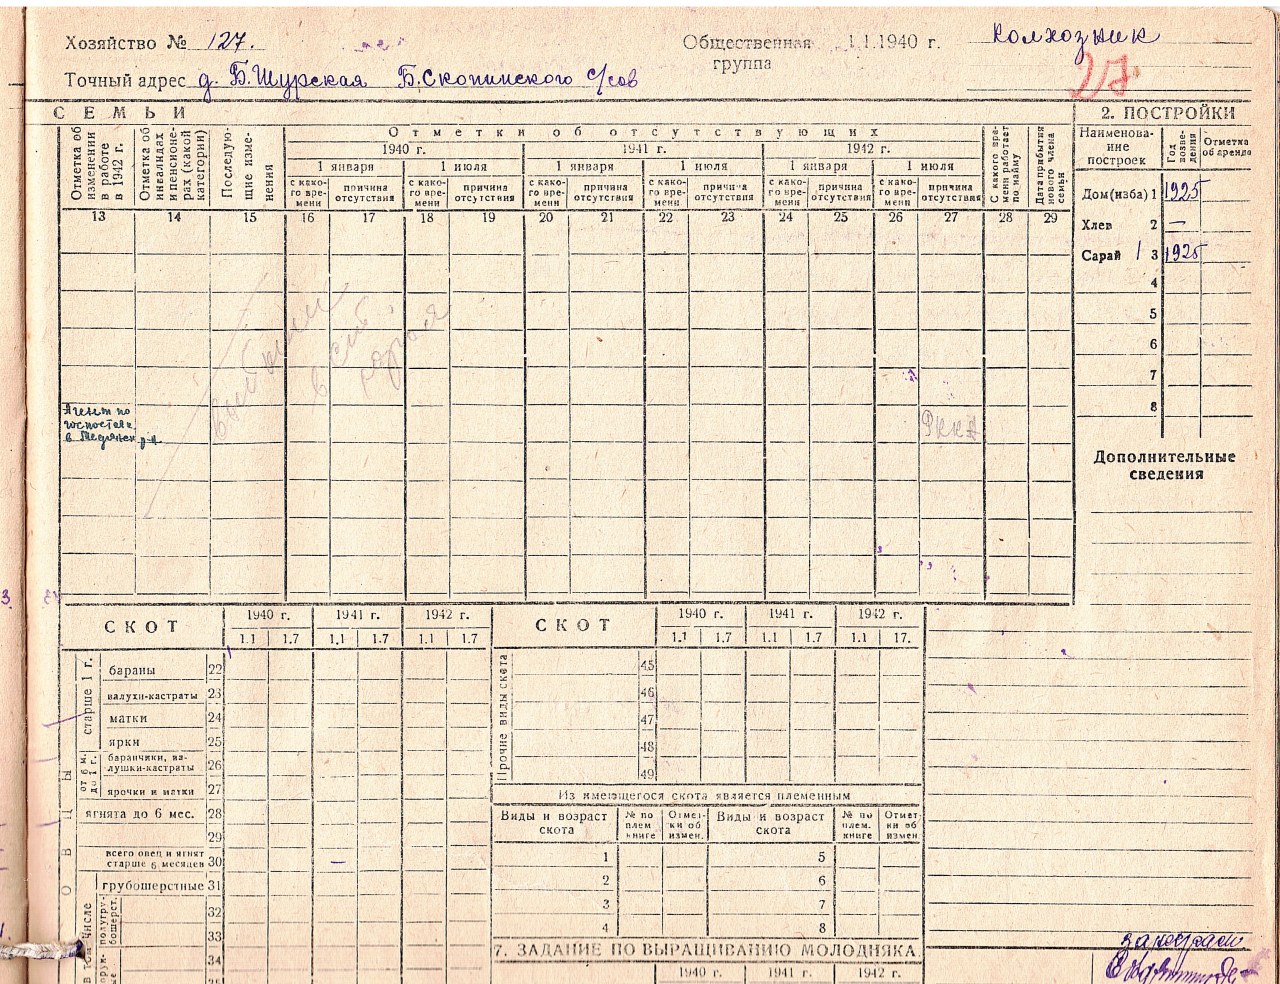 Хозяйство № 127.
Общественная 1.1.1940 г. колхозник
группа
27.
Точный адрес д. Б. Шурская Б. Скопинского с/сов
СЕМЬИ
2. ПОСТРОЙКИ
Отметка об изменении в работе в 1942 г.
Отметка об инвалидах и пенсионерах (какой категории)
Последующие изменения
Отметки об отсутствующих
1940 г. 1941 г. 1942 г.
1 января 1 июля 1 января 1 июля 1 января 1 июля
с како-го вре-мени причина отсутствия с како-го вре-мени причина отсутствия с како-го вре-мени причина отсутствия с како-го вре-мени причина отсутствия с како-го вре-мени причина отсутствия с како-го вре-мени причина отсутствия
С какого вре-мени работает по найму
Дата прибытия нового члена семьи
Наименова-ние построек
Год возве-дения
Отметка об аренде
13 14 15 16 17 18 19 20 21 22 23 24 25 26 27 28 29
Дом (изба) 1 1925
Хлев 2 —
Сарай 1 3 1925
4
5
6
7
8
выбыли
в
Агент по
госпостав
РККА
Дополнительные
сведения
СКОТ 1940 г. 1941 г. 1942 г.
1.1 1.7 1.1 1.7 1.1 1.7
ОВЦЫ
старше 1 г.
бараны 22
валухи-кастраты 23
матки 24
ярки 25
от 6 м. до 1 г.
баранчики, ва-
лушки-кастраты 26
ярочки и матки 27
ягнята до 6 мес. 28
29
всего овец и ягнят
старше 6 месяцев 30 —
в том числе
грубошерстные 31
полугру-
бошерст.
32
33
34
СКОТ 1940 г. 1941 г. 1942 г.
1.1 1.7 1.1 1.7 1.1 17.
Прочие виды скота
45
46
47
48
49
Из имеющегося скота является племенным
Виды и возраст скота № по плем. книге Отмет-ки об измен. Виды и возраст скота № по плем. книге Отмет-ки об измен
1 5
2 6
3 7
4 8
7. ЗАДАНИЕ ПО ВЫРАЩИВАНИЮ МОЛОДНЯКА.
1940 г. 1941 г. 1942 г.